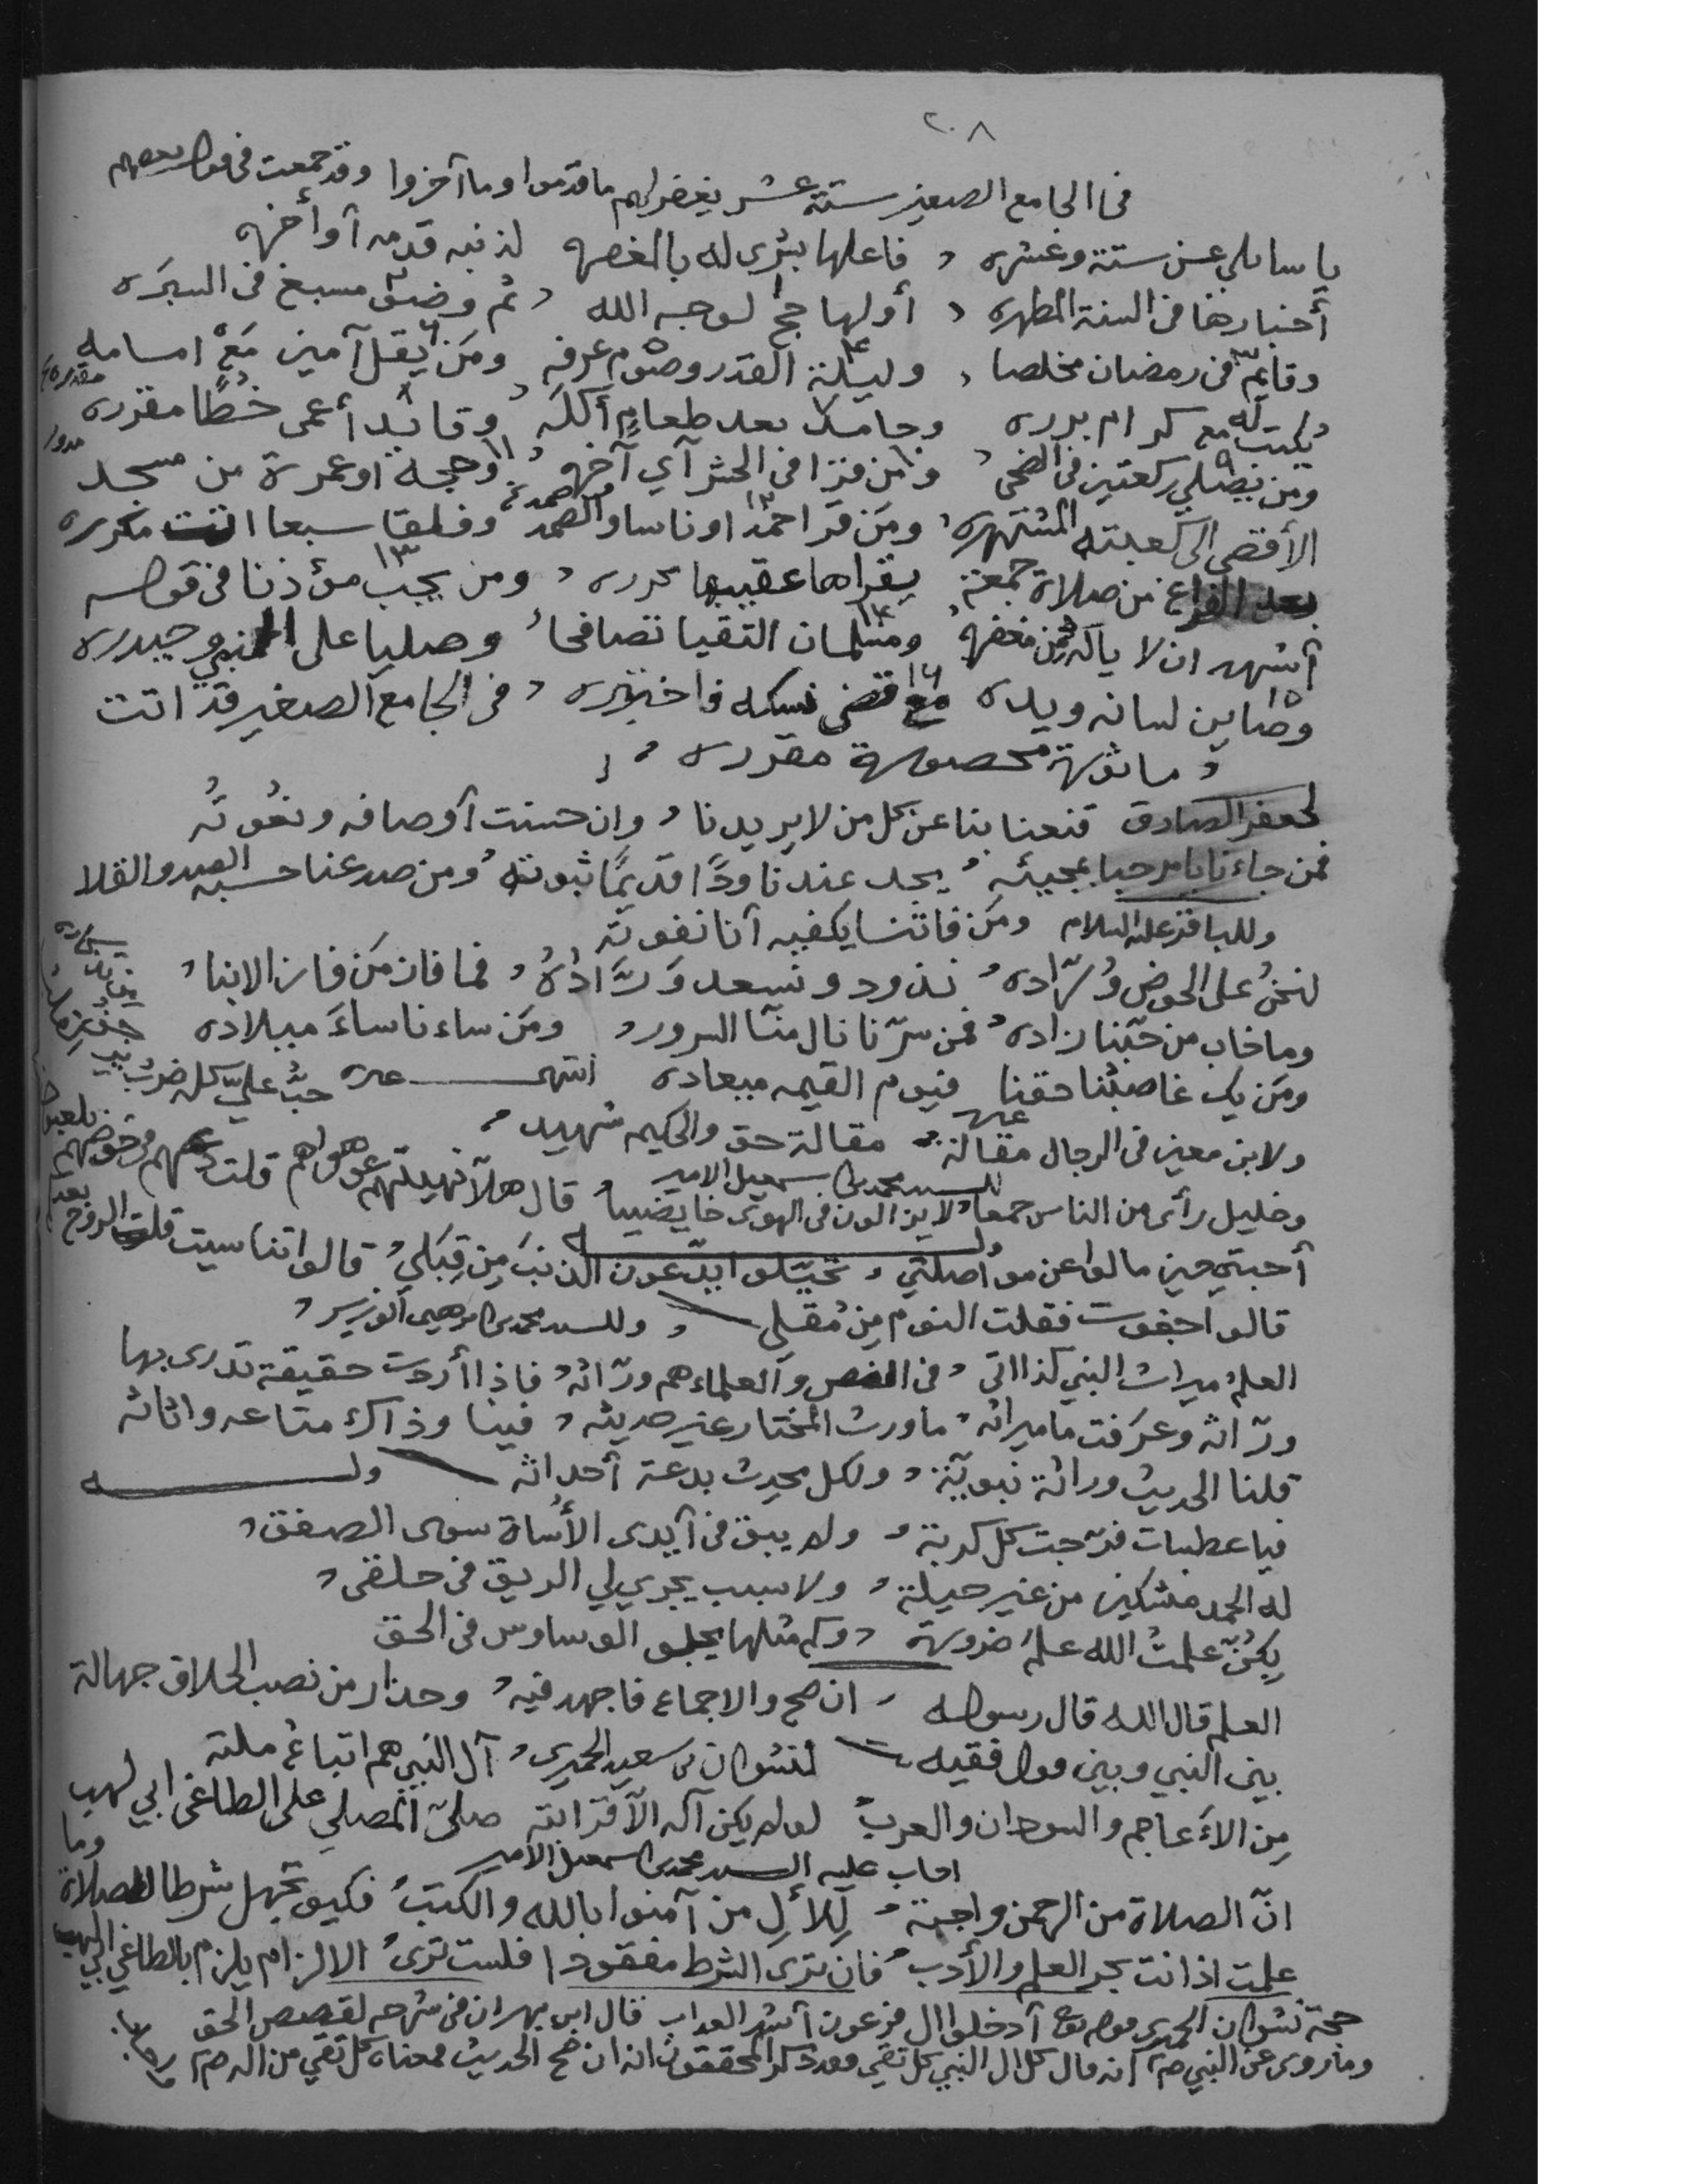 ٢٠٨
في الجامع الصغير ستة عشر يغفر لهم ما قدموا وما آخروا وقد جمعت في قول بعضهم
يا سائلي عن ستة وعشره ، فاعلها بشرى له بالمغفره لذنبه قدمه آو أخره
أخبارها في السنة المطهره ، أولها حج لوجه الله ، ثم وضوء مسبغ في السبره
وقايم في رمضان مخلصا ، وليلة القدر وصوم عرفه ومن يقل آمين مع امامه
يكتب له مع كرام برره وحامد بعد طعام أكله وقائد أعمى خطًا مقرره
ومن يصلي ركعتين في الضحى ، ومن قرا في الحشر آي آخره ، وحجة او عمرة من مسجد
الأقصى الى كعبته المشتهره ، ومن قرا حمدا وناسا والصمد وفلقا سبعا اتت مكرره
بعد الفراغ من صلاة جمعة يقراها عقيبها محرره ، ومن يجب مؤذنا في قوله
آشهد ان لا ومسلمان التقيا تصافحا ، وصليا على النبي وحيدره
وصاين لسانه ويده مع قضى نسكه فاختبره ، في الجامع الصغير قد اتت
، ماثورة محصورة مقرره ،
لجعفر الصادق قنعنا بنا عن كل من لا يريدنا ، وان حسنت آوصافه ونعوته
فمن جاءنا يا مرحبا بمجيئه ، يجد عندنا ودًا قديمًا ثبوته ، ومن صد عنا حسبه الصد والقلا
وللباقر عليه السلام ومن فاتنا يكفيه آنا نفوته
لنحن على الحوض وُرّاده ، نذود ونسعد وَرَّادهُ ، فما فاز من فاز الا بنا ،
وما خاب من حبنا زاده ، فمن سرّنا نال منّا السرور ، ومن ساءنا ساءَ ميلاده
ومن يك غاصبنا حقنا فيوم القيمه ميعاده انتهى حبّ عليّ كله ضرب
ولابن معين في الرجال مقالة ، مقالة حق والحكيم شهيد ،
للسيد محمد بن اسمعيل الامير
وخليل رأى من الناس جمعا ، لا يزالون في الهوى خايضينا ، قال هلّا نهيتهم عن هواهم قلت ذرهم في خوضهم يلعبون
وله
أحبتي حين مالوا عن مواصلتي ، تخيّلوا يدّعون الذنبَ مِن قِبَلي ، قالوا تناسيت قلت الروح بعدكم
قالوا جفوت فقلت النوم مِن مُقَلِي ، وللسيد محمد بن ابرهيم الوزير ،
العلم ميراث النبي كذا اتى ، في النص والعلماء هم ورّاثه ، فاذا أردت حقيقة تدرى بها
ورّاثه وعرفت ما ميراثه ، ما ورث المختار غير حديثه ، فينا وذاك متاعه واثاثه
قلنا الحديث وراثة نبويّة ، ولكل محدث بدعة آحداثه وله
فيا عطسات فرّجت كل كربة ، ولم يبق في آيدى الأساة سوى الصفق ،
له الحمد من غير حيلة ، ولا سبب يجري لي الريق في حلقى ،
بكنّ علمتُ الله علمَ ضرورة ، وكم مثلها يجلو الوساوس في الحق
العلم قال الله قال رسوله ، ان صح والاجماع فاجهد فيه ، وحذار من نصب الخلاف جهالة
بين النبي وبين قول فقيه ، لنشوان بن سعيد الحميرى ، آل النبي هم اتباع ملته
مِن الأعاجم والسودان والعرب لو لم يكن آله الآ قرابته صلى المصلي على الطاغى ابي لهب
اجاب عليه السيد محمد بن اسمعيل الأمير
انّ الصلاة من الرحمن واجبة ، لِلآلِ من آمنوا بالله والكتب ، فكيف تجهل شرطا للصلاة وما
علمت اذ انت بحر العلم والأدب ، فان ترى الشرط مفقودا فلست ترى ، الالزام يلزم بالطاغي ابي لهب
حجة نشوان الحميرى قوله تع آدخلوا ال فرعون آشد العذاب قال ابن بهران في شرحه لقصص الحق
وما روى عن النبي صلم انه قال كل ال النبي كل تقي فقد ذكر المحققون انه ان صح الحديث فمعناه كل تقي من اله صلم